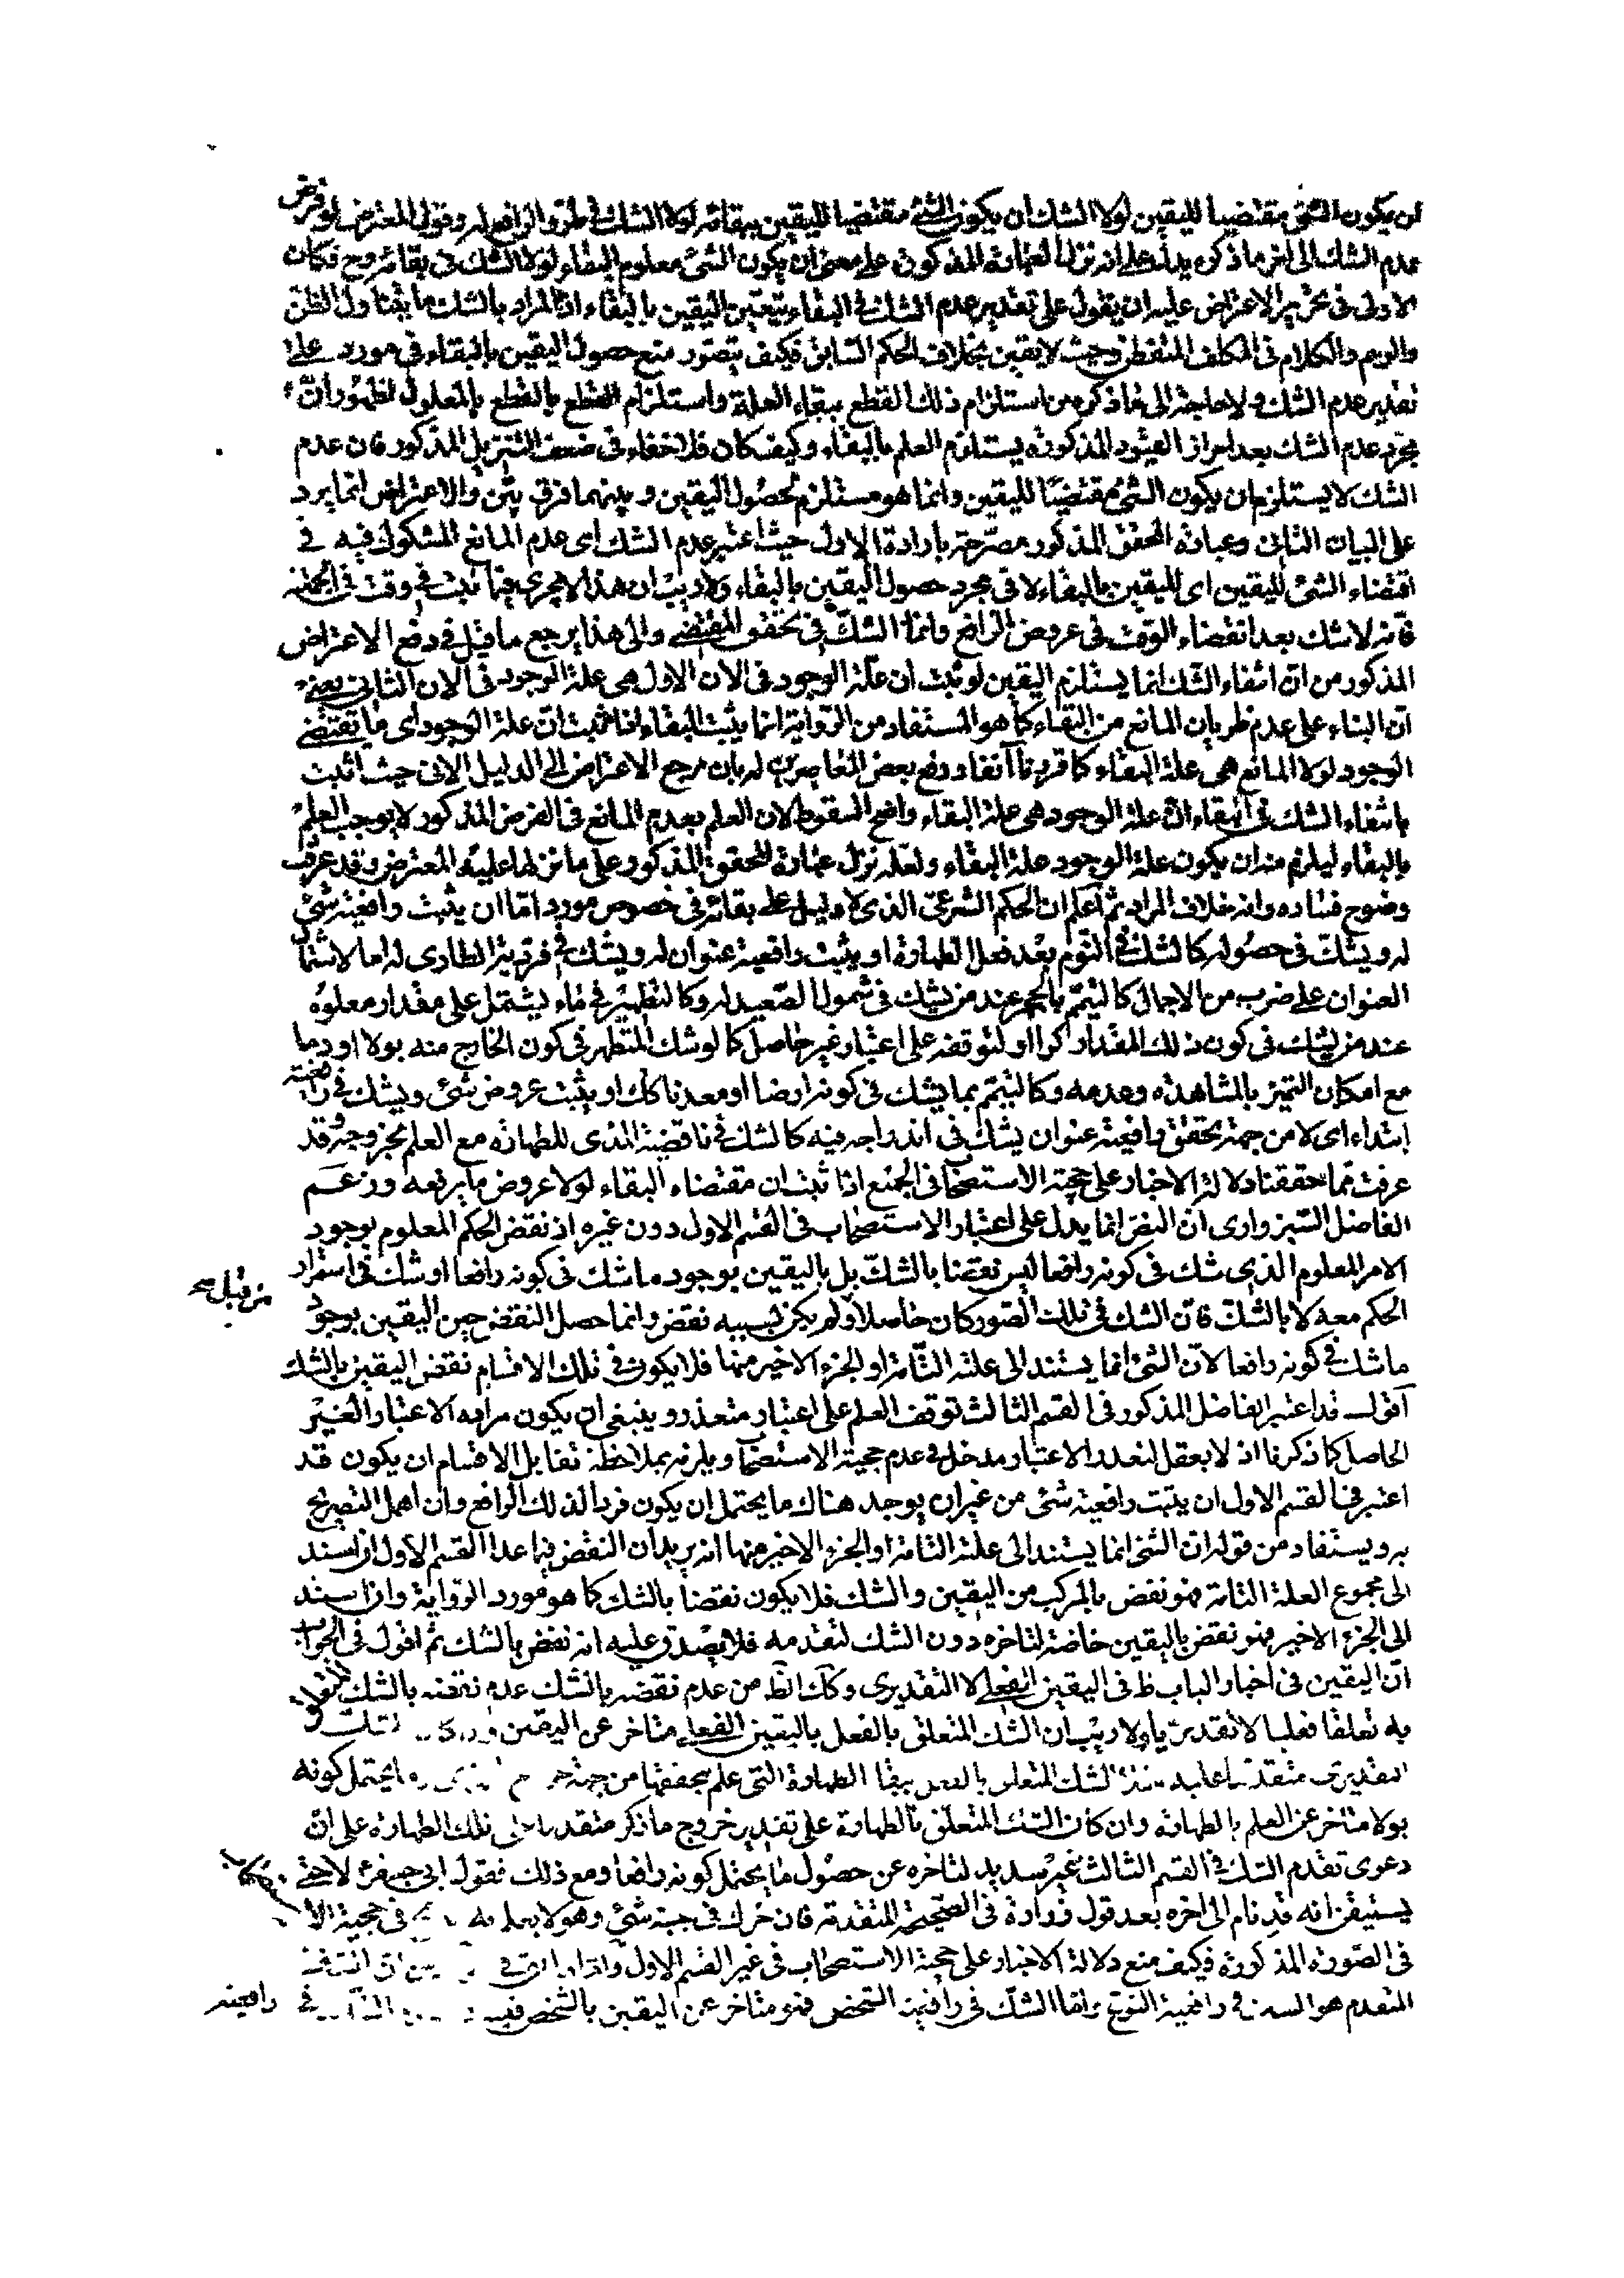 ان يكون الشئ مقتضيا لليقين لولا الشك ان يكون الشئ مقتضيا لليقين ببقائه لولا الشك في طرو الرافع له وقول المعترض لو فرض
عدم الشك الى اخر ما ذكره يدل على انه نزل العبارة المذكورة على معنى ان يكون الشئ معلوم البقاء لولا الشك في بقائه وح فكان
الاولى في تحرير الاعتراض عليه ان يقول على تقدير عدم الشك في البقاء يتعين اليقين بالبقاء اذ المراد بالشك ما يتناول الظن
والوهم والكلام في المكلف المتفطن وحيث لا يقين بخلاف الحكم السابق فكيف يتصور منع حصول اليقين بالبقاء في مورد على
تقدير عدم الشك ولا حاجة الى ما ذكره من استلزام ذلك القطع ببقاء العلة واستلزام القطع بالقطع بالمعلول لظهور ان
مجرد عدم الشك بعد احراز القيود المذكورة يستلزم العلم بالبقاء وكيف كان فلا خفاء في ضعف التنزيل المذكور فان عدم
الشك لا يستلزم ان يكون الشئ مقتضيا لليقين وانما هو مستلزم لحصول اليقين وبينهما فرق بين والاعتراض انما يرد
على البيان الثاني وعبارة المحقق المذكور مصرحة بارادة الاول حيث اعتبر عدم الشك اى عدم المانع المشكوك فيه في
اقتضاء الشئ لليقين اى لليقين بالبقاء لا في مجرد حصول اليقين بالبقاء ولا ريب ان هذا لا يجرى فيما ثبت في وقت في الجملة
فانه لا شك بعد انقضاء الوقت في عروض الرافع وانما الشك في تحقق المقتضى والى هذا يرجع ما قيل في دفع الاعتراض
المذكور من ان انتفاء الشك انما يستلزم اليقين لو ثبت ان علة الوجود في الان الاول هي علة الوجود في الان الثاني يعنى
ان البناء على عدم طريان المانع من البقاء كما هو المستفاد من الرواية انما يثبت البقاء اذا ثبت ان علة الوجود اى ما تقتضى
الوجود لولا المانع هى علة البقاء كما قررنا آنفا ودفع بعض المعاصرين له بان مرجع الاعتراض الى الدليل الانى حيث اثبت
بانتفاء الشك في البقاء ان علة الوجود هى علة البقاء واضح السقوط لان العلم بعدم المانع في الفرض المذكور لا يوجب العلم
بالبقاء ليلزم منه ان يكون علة الوجود علة البقاء ولعله نزل عبارة المحقق المذكور على ما نزلها عليه المعترض وقد عرفت
وضوح فساده وانه خلاف المراد ثم اعلم ان الحكم الشرعى الذى لا دليل على بقائه في خصوص مورد اما ان يثبت رافعية شئ
له ويشك في حصوله كالشك في النوم بعد فعل الطهارة او يثبت رافعية عنوان له ويشك في فردية الطارى له اما لاشتمال
العنوان على ضرب من الاجمال كالتيمم بالحجر عند من يشك في شمول الصعيد له وكالتطهير في ماء يشتمل على مقدار معلوم
عند من يشك في كون ذلك المقدار كرا او لتوقفه على اعتبار غير حاصل كما لو شك المتطهر في كون الخارج منه بولا او دما
مع امكان التميز بالمشاهدة وعدمه وكالتيمم بما يشك في كونه ارضا او معدنا كك او يثبت عروض شئ ويشك في رافعيته
ابتداء اى لا من جهة تحقق رافعية عنوان يشك في اندراجه فيه كالشك في ناقضية المذى للطهارة مع العلم بخروجه وقد
عرفت مما حققنا دلالة الاخبار على حجية الاستصحاب في الجميع اذا ثبت ان مقتضاه البقاء لولا عروض ما يرفعه وزعم
الفاضل السبزوارى ان النص انما يدل على اعتبار الاستصحاب في القسم الاول دون غيره اذ نقض الحكم المعلوم بوجود
الامر المعلوم الذى شك في كونه رافعا ليس نقضا بالشك بل باليقين بوجود ما شك في كونه رافعا او شك في استمرار
الحكم معه لا بالشك فان الشك في تلك الصور كان حاصلا من قبل ولم يكن بسببه نقض وانما حصل النقض حين اليقين بوجود
ما شك في كونه رافعا لان الشئ انما يستند الى علته التامة او الجزء الاخير منها فلا يكون في تلك الاقسام نقض اليقين بالشك
اقول قد اعتبر الفاضل المذكور في القسم الثالث توقف العلم على اعتبار متعذر وينبغى ان يكون مراده الاعتبار الغير
الحاصل كما ذكرنا اذ لا يعقل لتعذر الاعتبار مدخل في عدم حجية الاستصحاب ويلزمه بملاحظة تقابل الاقسام ان يكون قد
اعتبر في القسم الاول ان يثبت رافعية شئ من غير ان يوجد هناك ما يحتمل ان يكون فردا لذلك الرافع وان اهمل التصريح
به ويستفاد من قوله ان الشئ انما يستند الى علته التامة او الجزء الاخير منها انه يريد ان النقض فيما عدا القسم الاول ان اسند
الى مجموع العلة التامة فهو نقض بالمركب من اليقين والشك فلا يكون نقضا بالشك كما هو مورد الرواية وان اسند
الى الجزء الاخير فهو نقض باليقين خاصة لتاخره دون الشك لتقدمه فلا يصدق عليه انه نقض بالشك ثم اقول في الجواب
ان اليقين في اخبار الباب ظ في اليقين الفعلى لا التقديرى وكك الظ من عدم نقضه بالشك عدم نقضه بالشك المتعلق
به تعلقا فعليا لا تقديريا ولا ريب ان الشك المتعلق بالفعل باليقين الفعلى متاخر عن اليقين
التقديرى متقدما عليه الشك المتعلق بالفعل ببقاء الطهارة التى علم بتحققها من جهة يحتمل كونه
بولا متاخر عن العلم بالطهارة وان كان الشك المتعلق بالطهارة على تقدير خروج ما ذكر متقدما على تلك الطهارة على ان
دعوى تقدم الشك في القسم الثالث غير سديد لتاخره عن حصول ما يحتمل كونه رافعا ومع ذلك فقول ابى جعفر ع لا حتى
يستيقن انه قد نام الى اخره بعد قول زرارة في الصحيحة المتقدمة فان حرك في جنبه شئ وهو لا يعلم به في حجية
في الصورة المذكورة فكيف منع دلالة الاخبار على حجية الاستصحاب في غير القسم الاول
المتقدم هو الشك في رافعية النوع واما الشك في رافعية الشخص فهو متاخر عن اليقين بالشخص في رافعية